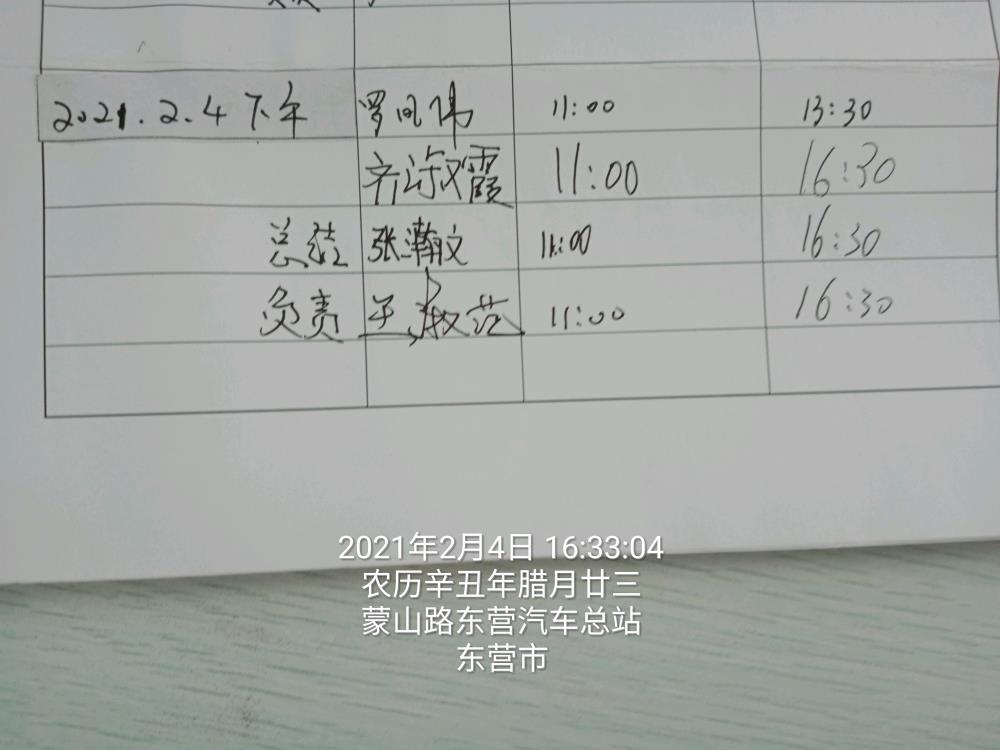 2021.2.4下午 罗凤伟 11:00 13:30
齐淑霞 11:00 16:30
总结 张瀚文 11:00 16:30
负责 王淑范 11:00 16:30
2021年2月4日 16:33:04
农历辛丑年腊月廿三
蒙山路东营汽车总站
东营市